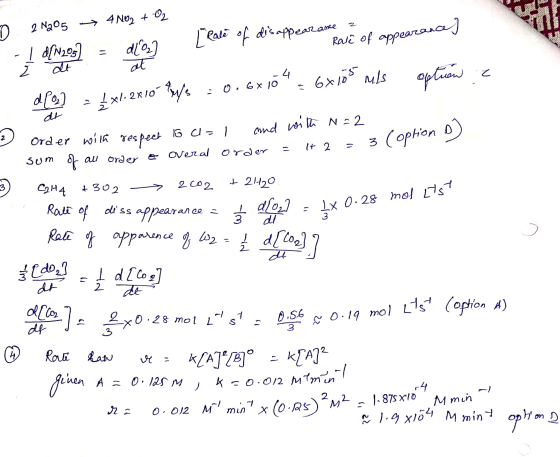 ① 2 N2O5 → 4NO2 + O2
[Rate of disappearance = Rate of appearance]
- 1/2 d[N2O5]/dt = d[O2]/dt
d[O2]/dt = 1/2 × 1.2×10⁻⁴ M/s = 0.6×10⁻⁴ = 6×10⁻⁵ M/s option C
② Order with respect to Cl = 1 and with N = 2
sum of all order = overal order = 1+2 = 3 (option D)
③ C2H4 + 3O2 → 2CO2 + 2H2O
Rate of diss appearance = 1/3 d[O2]/dt = 1/3 × 0.28 mol L⁻¹s⁻¹
Rate of apparence of CO2 = 1/2 d[CO2]/dt]
1/3 [dO2]/dt = 1/2 d[CO2]/dt
d[CO2/dt] = 2/3 × 0.28 mol L⁻¹ s⁻¹ = 0.56/3 ≈ 0.19 mol L⁻¹s⁻¹ (option A)
④ Rate law r = K[A]²[B]⁰ = K[A]²
given A = 0.125 M, K = 0.012 M⁻¹min⁻¹
r = 0.012 M⁻¹ min⁻¹ × (0.125)² M² = 1.875×10⁻⁴ M min⁻¹
≈ 1.9×10⁻⁴ M min⁻¹ option D